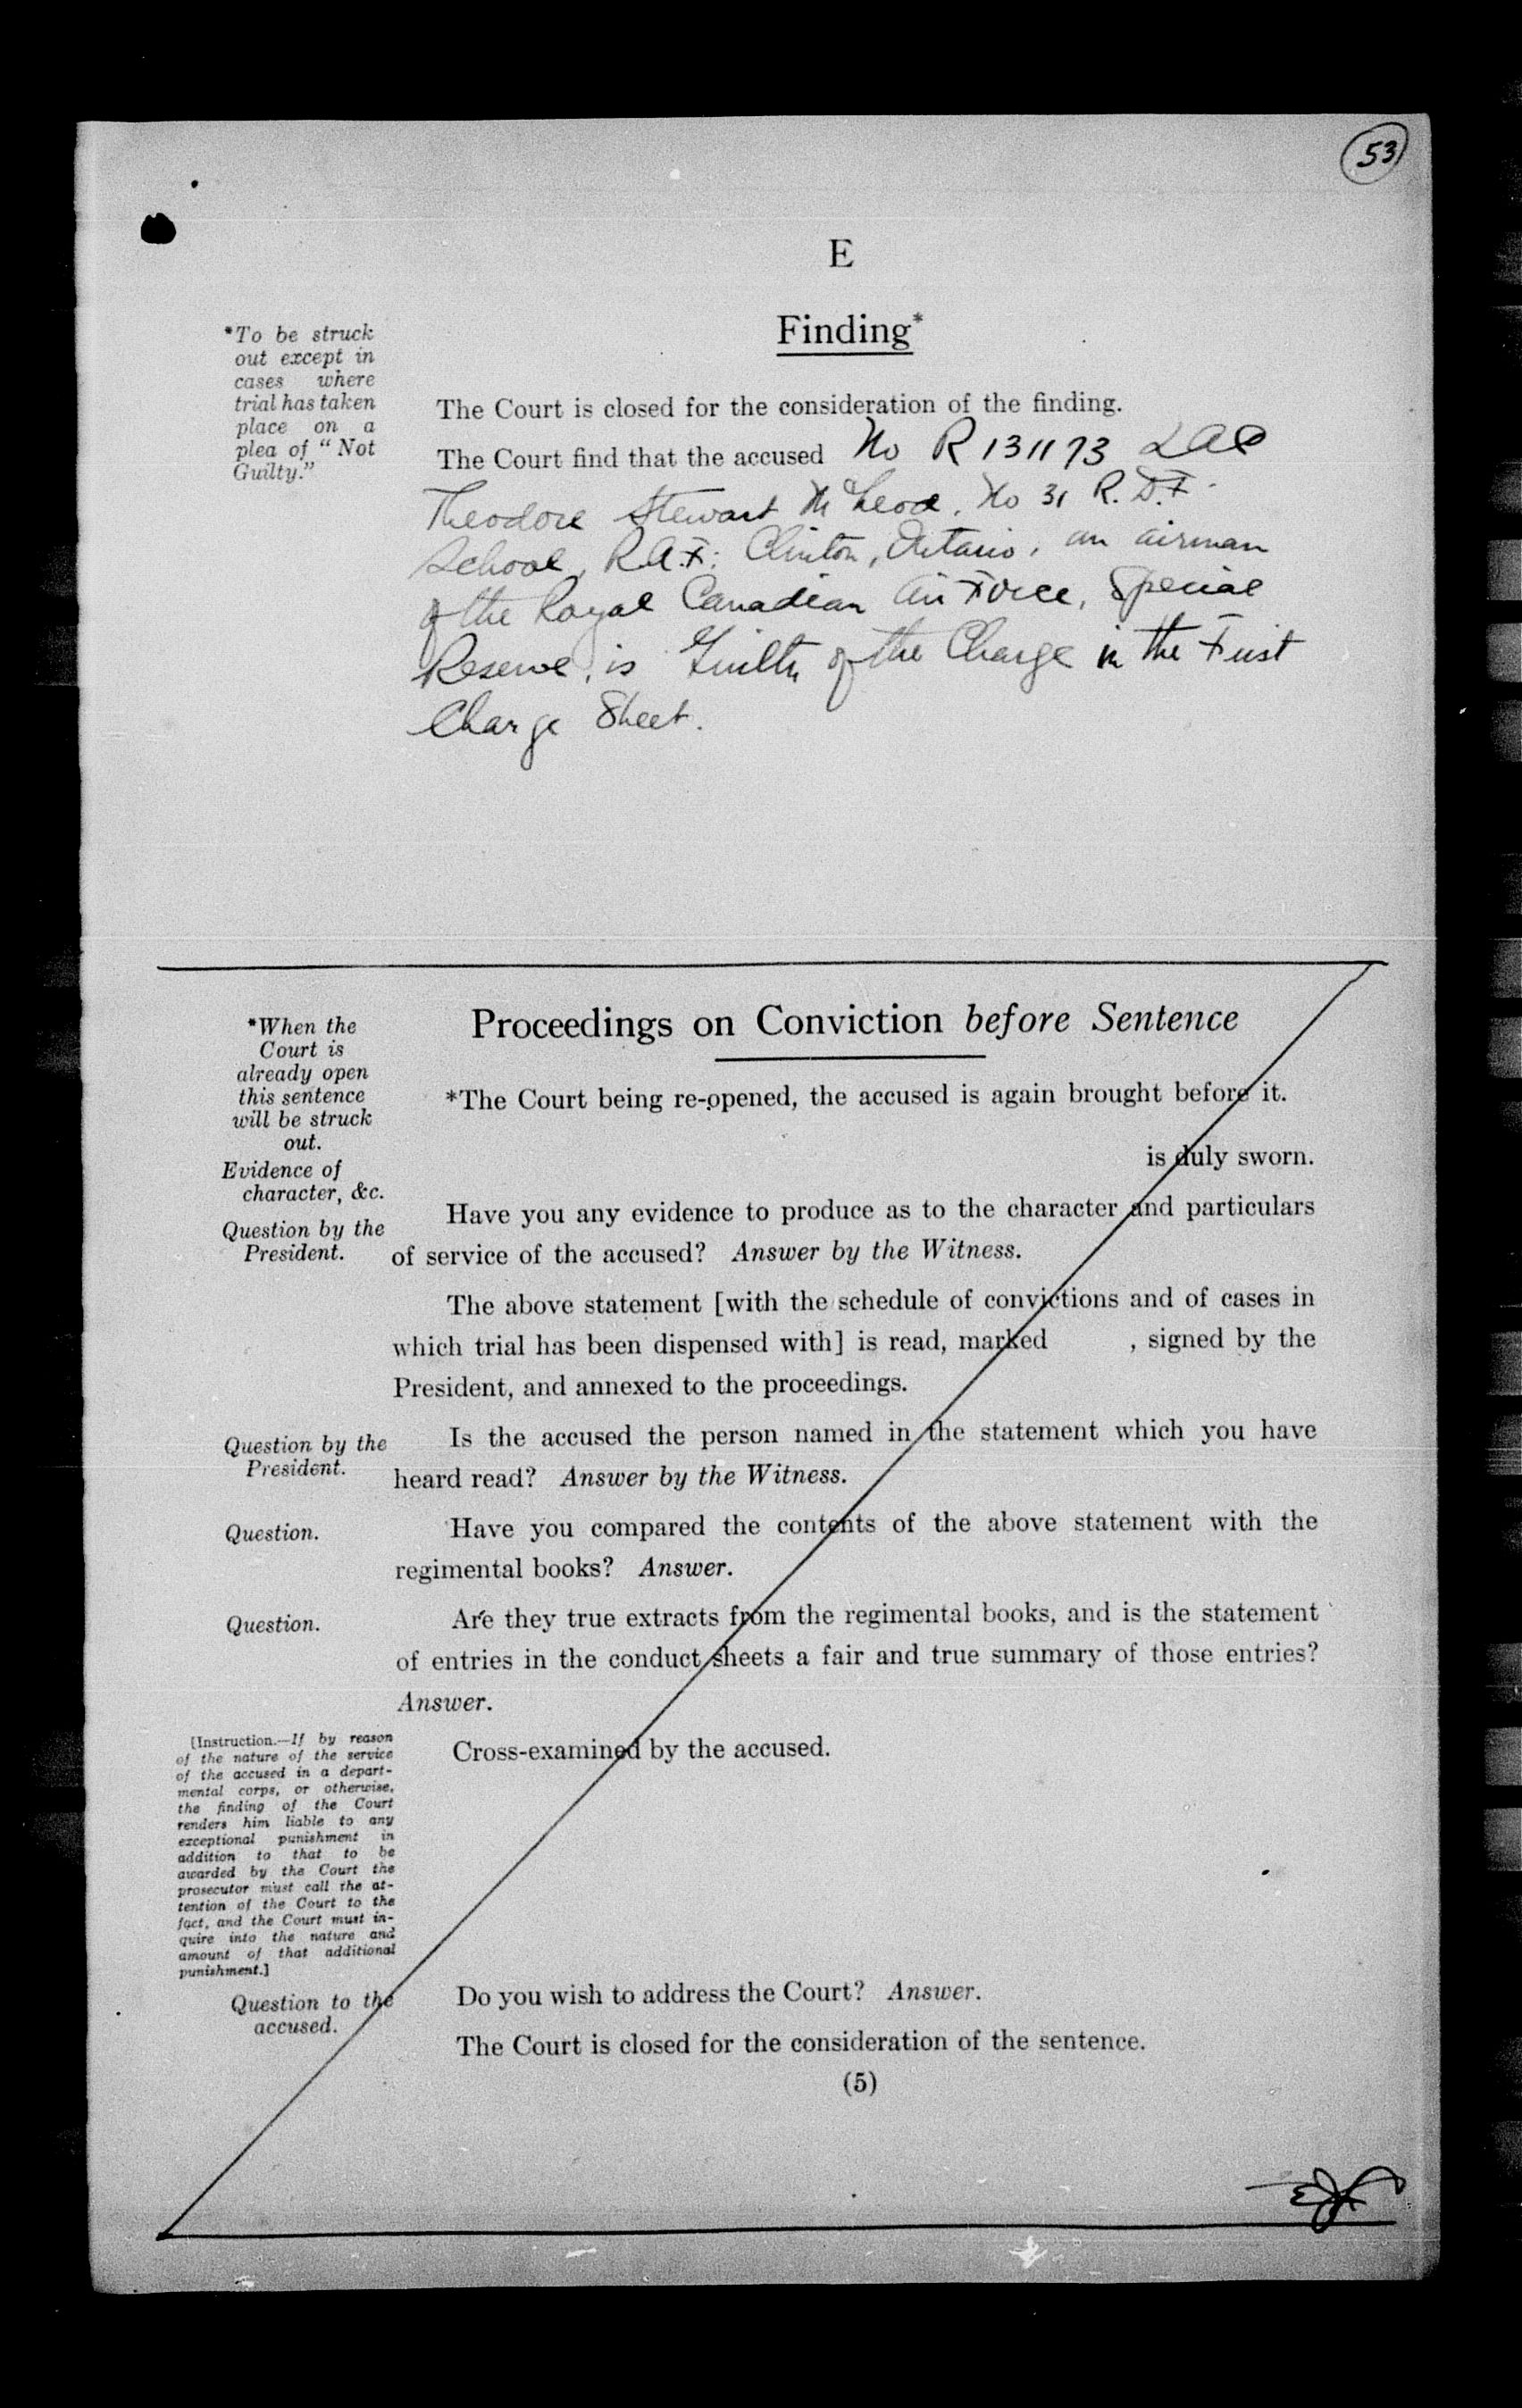 53
E
Finding*
*To be struck
out except in
cases where
trial has taken
place on a
plea of “Not
Guilty.”
The Court is closed for the consideration of the finding.
The Court find that the accused No R 131173 LAC
Theodore Stewart McLeod, No 31 R.D.F.
School, R.A.F. Clinton, Ontario, an airman
of the Royal Canadian Air Force, Special
Reserve, is Guilty of the Charge in the First
Charge Sheet.
Proceedings on Conviction before Sentence
*When the
Court is
already open
this sentence
will be struck
out.
*The Court being re-opened, the accused is again brought before it.
is duly sworn.
Evidence of
character, &c.
Question by the
President.
Have you any evidence to produce as to the character and particulars
of service of the accused? Answer by the Witness.
The above statement [with the schedule of convictions and of cases in
which trial has been dispensed with] is read, marked , signed by the
President, and annexed to the proceedings.
Question by the
President.
Is the accused the person named in the statement which you have
heard read? Answer by the Witness.
Question.
Have you compared the contents of the above statement with the
regimental books? Answer.
Question.
Are they true extracts from the regimental books, and is the statement
of entries in the conduct sheets a fair and true summary of those entries?
Answer.
[Instruction.—If by reason
of the nature of the service
of the accused in a depart-
mental corps, or otherwise,
the finding of the Court
renders him liable to any
exceptional punishment in
addition to that to be
awarded by the Court the
prosecutor must call the at-
tention of the Court to the
fact, and the Court must in-
quire into the nature and
amount of that additional
punishment.]
Cross-examined by the accused.
Question to the
accused.
Do you wish to address the Court? Answer.
The Court is closed for the consideration of the sentence.
(5)